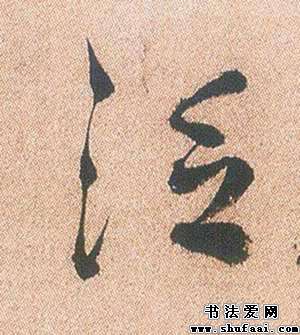 泛
书法爱网
www.shufaai.com